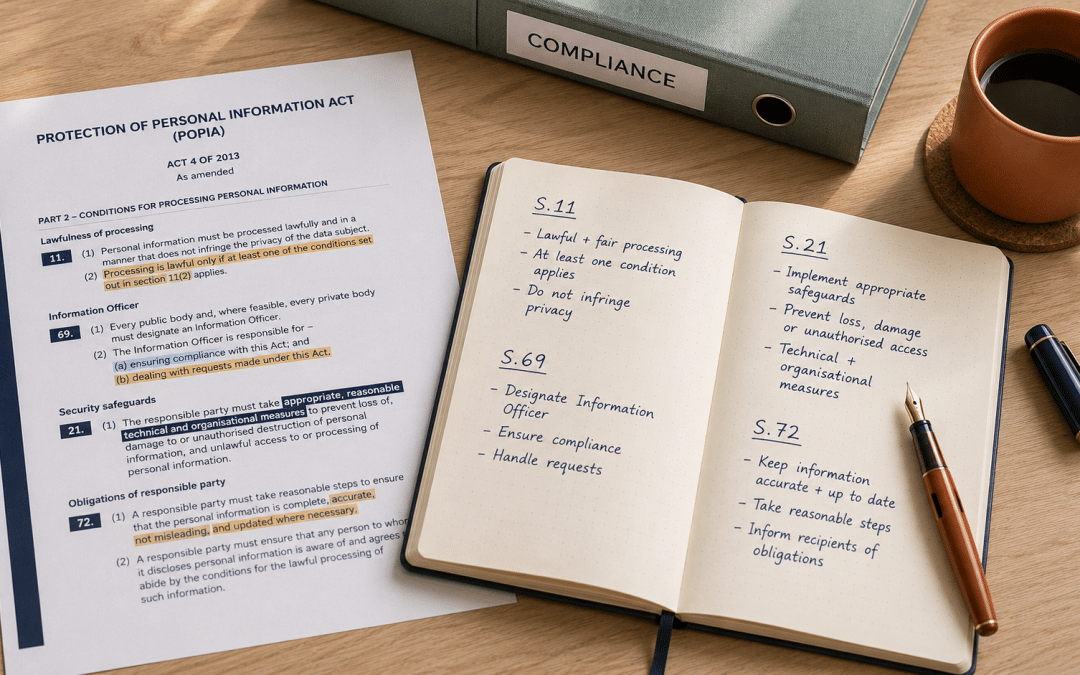 COMPLIANCE
PROTECTION OF PERSONAL INFORMATION ACT
(POPIA)
ACT 4 OF 2013
As amended
PART 2 – CONDITIONS FOR PROCESSING PERSONAL INFORMATION
Lawfulness of processing
11. (1) Personal information must be processed lawfully and in a
manner that does not infringe the privacy of the data subject.
(2) Processing is lawful only if at least one of the conditions set
out in section 11(2) applies.
Information Officer
69. (1) Every public body and, where feasible, every private body
must designate an Information Officer.
(2) The Information Officer is responsible for –
(a) ensuring compliance with this Act; and
(b) dealing with requests made under this Act.
Security safeguards
21. (1) The responsible party must take appropriate, reasonable
technical and organisational measures to prevent loss of,
damage to or unauthorised destruction of personal
information, and unlawful access to or processing of
personal information.
Obligations of responsible party
72. (1) A responsible party must take reasonable steps to ensure
that the personal information is complete, accurate,
not misleading, and updated where necessary.
(2) A responsible party must ensure that any person to whom
it discloses personal information is aware of and agrees
abide by the conditions for the lawful processing of
such information.
S.11
– Lawful + fair processing
– At least one condition
applies
– Do not infringe
privacy
S.69
– Designate Information
Officer
– Ensure compliance
– Handle requests
S.21
– Implement appropriate
safeguards
– Prevent loss, damage
or unauthorised access
– Technical +
organisational
measures
S.72
– Keep information
accurate + up to date
– Take reasonable steps
– Inform recipients of
obligations